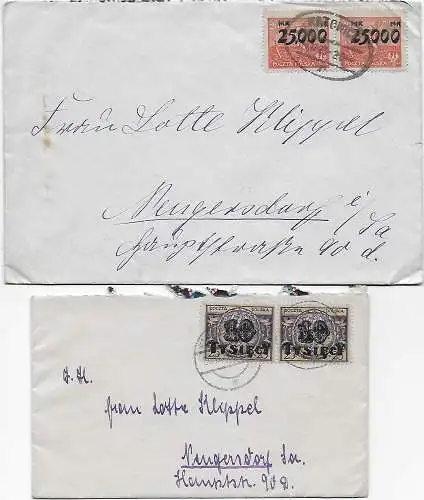 MK 25,000 MK 25,000
POCZTA POLSKA POCZTA POLSKA
Frau Lotte Klippel
Neugersdorf i/Sa
Hauptstraße 90 d.
POCZTA POLSKA POCZTA POLSKA
Tysięcy Tysięcy
Frau Lotte Klippel
Neugersdorf Sa.
Hauptstr. 90 D.